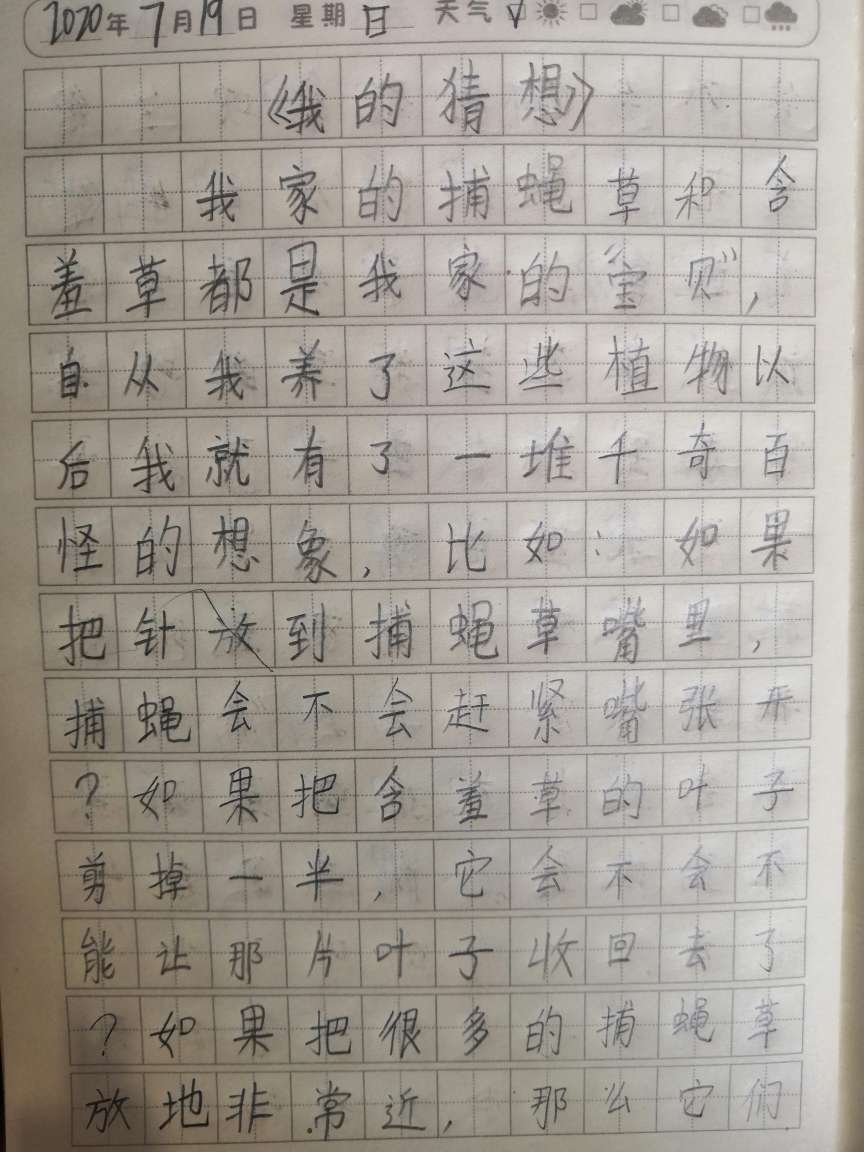 2020年7月19日 星期日 天气√
《我的猜想》
我家的捕蝇草和含
羞草都是我家的“宝贝”，
自从我养了这些植物以
后我就有了一堆千奇百
怪的想象，比如：如果
把针放到捕蝇草嘴里，
捕蝇会不会赶紧嘴张开
？如果把含羞草的叶子
剪掉一半，它会不会不
能让那片叶子收回去了
？如果把很多的捕蝇草
放地非常近，那么它们